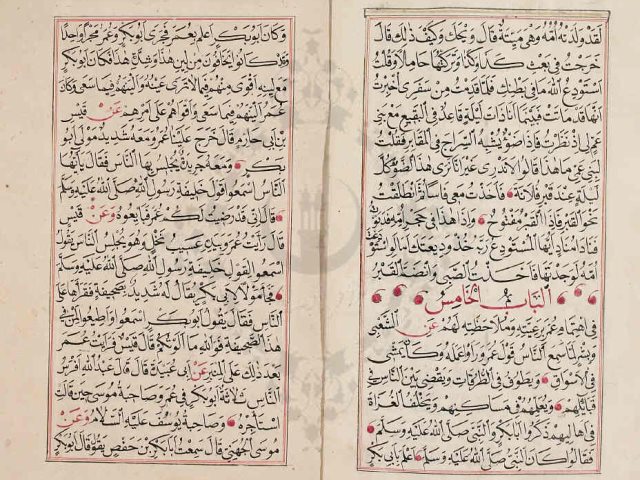 لقد ولدته أمه وهي ميتة قال ويحك وكيف ذلك قال
خرجت في بعث كذا وكذا وتركتها حاملا وقلت
استودع الله ما في بطنك فلما قدمت من سفري أخبرت
أنها قد ماتت فبينما أنا ذات ليلة قاعد في البقيع مع بني
عم لي إذ نظرت فإذا ضوء يشبه السراج في المقابر فقلت
لبني عمي ما هذا قالوا لا ندري غير أنا نرى هذا الضوء كل
ليلة عند قبر فلانة فأخذت معي فأسا ثم انطلقت
نحو القبر فإذا القبر مفتوح وإذا هذا في حجر أمه فدنوت
فإذا مناد أيها المستودع ربه خذ وديعتك أما لو استودعته
أمه لوجدتها فأخذت الصبي وانضم القبر
الباب الخامس
في اهتمام عمر برعيته وملاحظته لهم عن الشعبي
وبشر لما سمع الناس قول عمر ورأوا عمله وكان يمشي
في الأسواق ويطوف في الطرقات ويقضي بين الناس في
قبائلهم ويعلمهم في مساكنهم ويخلف الغزاة
في أهاليهم ذكروا أبا بكر والنبي صلى الله عليه وسلم
فقالوا كان النبي صلى الله عليه وسلم أعلم بأبي بكر
وكان أبو بكر أعلم بعمر فجرى أبو بكر وعمر مجرا واحدا
وقد كانوا يخافون من لين هذا وشدة هذا فكان أبو بكر
مع لينه أقوى منهم فيما لا ترى عينه واليهم فيما سعى وكان
عمر اليهم فيما سعى وأقواهم على أمرهم عن قيس
بن أبي حازم قال خرج علينا عمر ومعه شديد مولى أبو
بكر ومعه جريدة يجلس بها الناس فقال يا أيها
الناس اسمعوا قول خليفة رسول الله صلى الله عليه وسلم
قال إني قد رضيت لكم عمر فبايعوه وعن قيس
قال رأيت عمر وبيده عسيب نخل وهو يجلس الناس يقول
اسمعوا لقول خليفة رسول الله صلى الله عليه وسلم
فجاء مولا لأبي بكر يقال له شديد بصحيفة فقرأها على
الناس فقال يقول أبو بكر اسمعوا وأطيعوا لمن في
هذا الصحيفة فوالله ما ألوتكم قال قيس فرأيت عمر
بعد ذلك على المنبر عن أبي عبيدة قال قال عبد الله أفرس
الناس ثلاثة أبو بكر في عمر وصاحبة موسى حين قالت
استأجره وصاحبة يوسف عليه السلام وعن
موسى الجهني قال سمعت أبا بكر بن حفص يقول قال أبو بكر